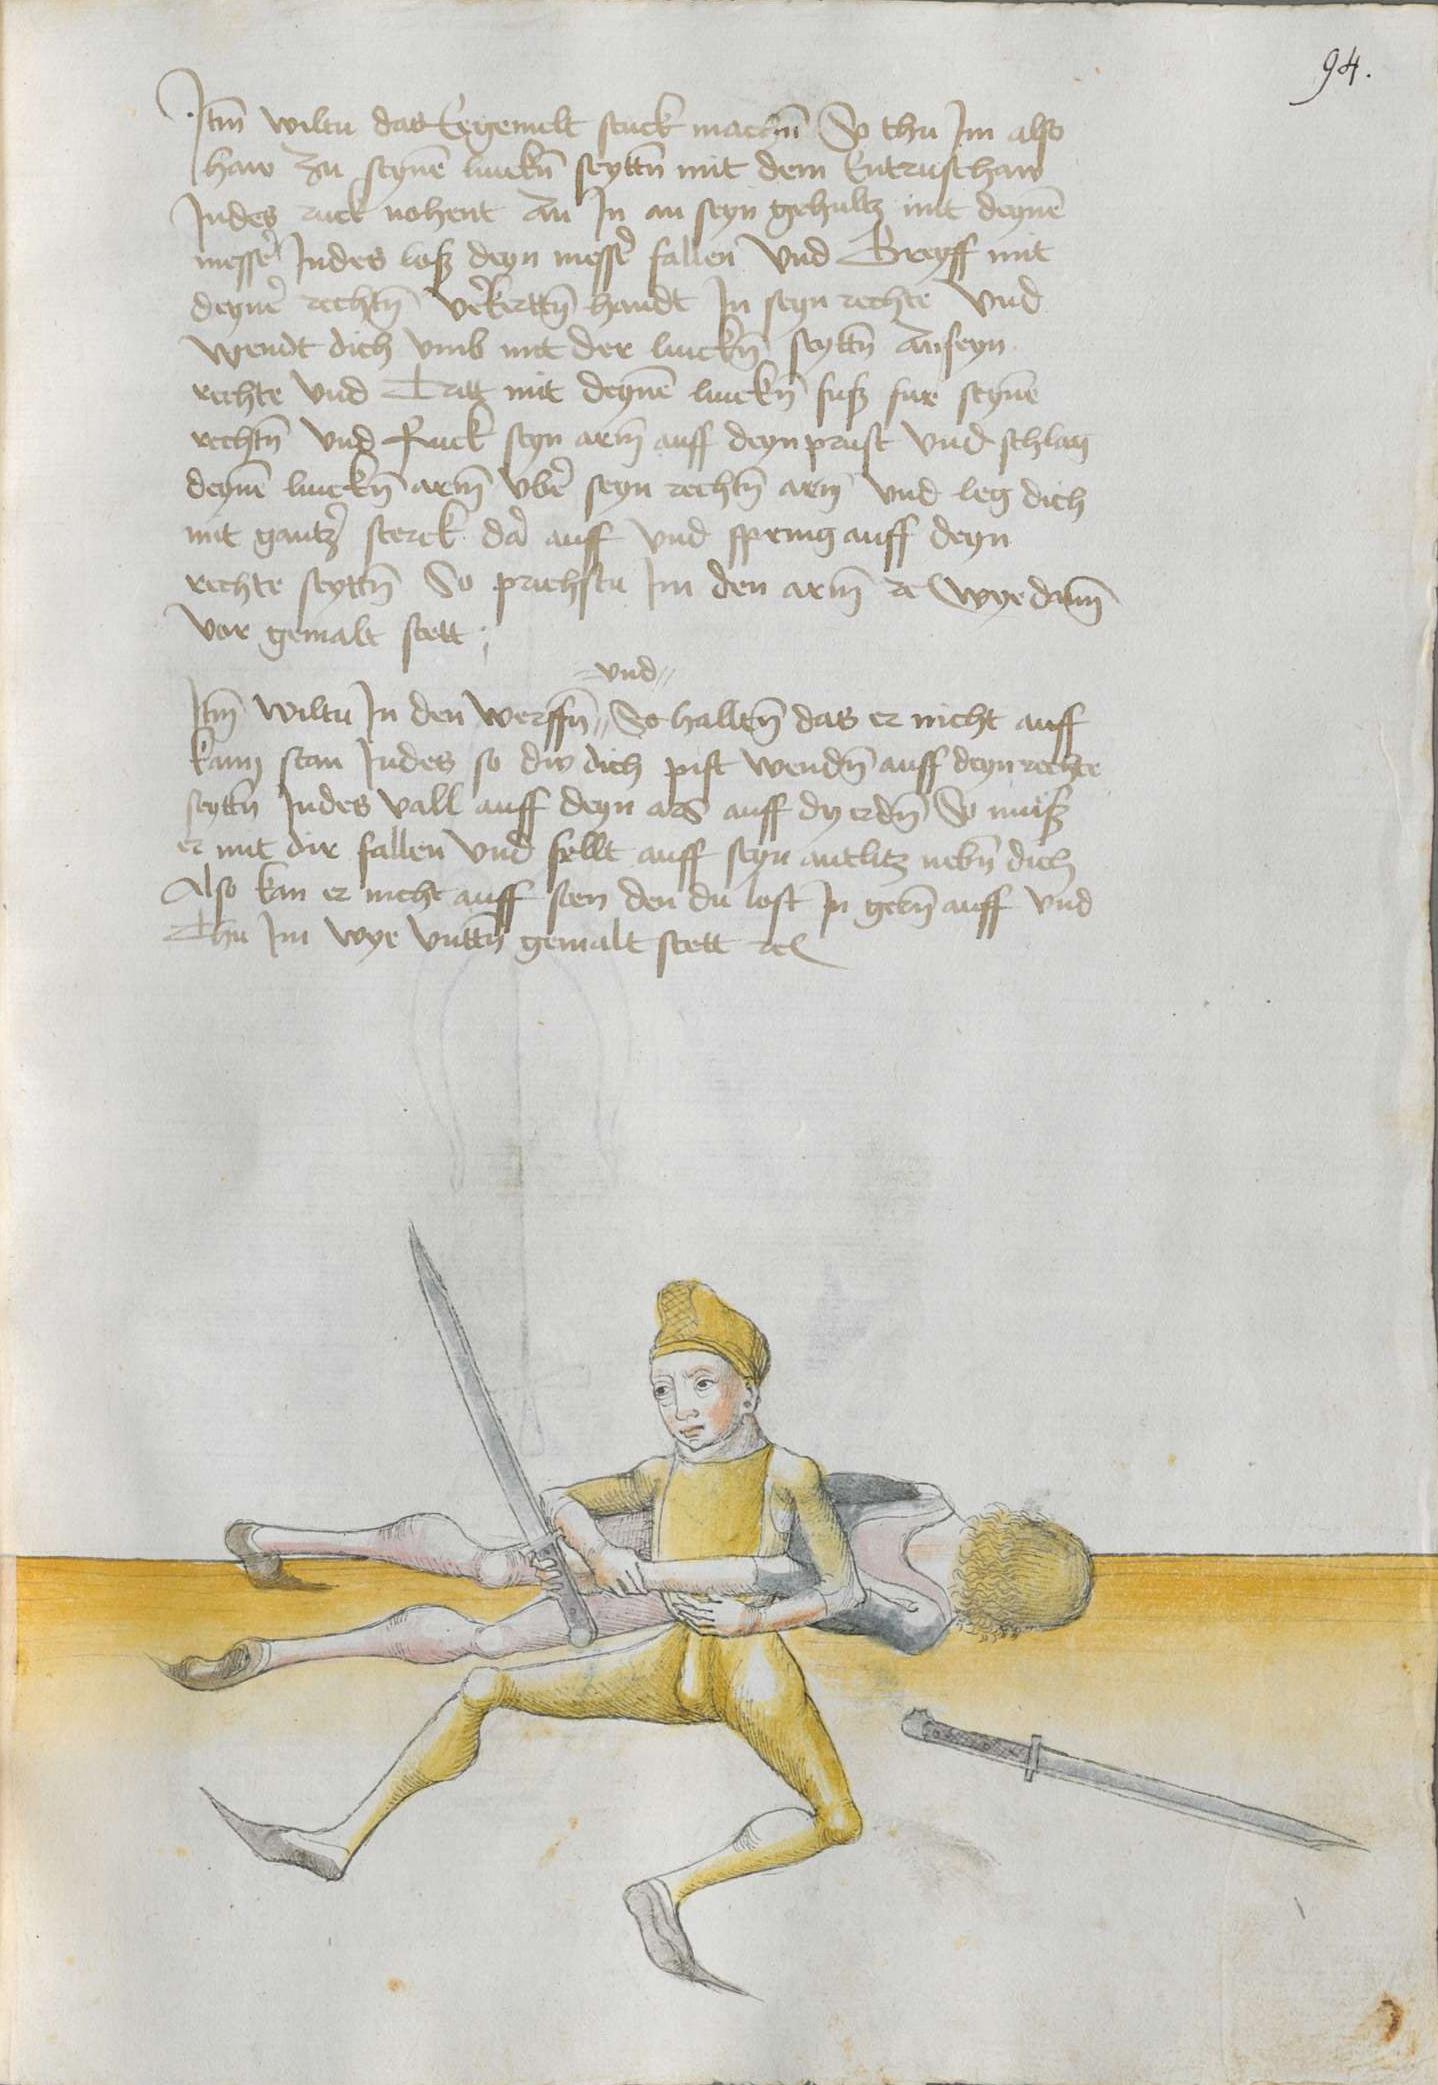 94.
Itm̄ wiltu das Egemelt stuck machñ So thu Im also
haw zu seynē linckñ seyttñ mit dem Entrusthaw
Indes ruck nohent An In an seyn gehultz mit deynē
messer̄ Indes loß deyn messer̄ fallen Und Greyff mit
deyner̄ rechtñ ver̄kerttñ handt In seyn rechte Und
Wendt dich umb mit der linckñ seyttñ An seyn
rechte Und Tritt mit deynē linckñ fuß fur seynē
rechtñ Und Ruck seyn arm̄ auff deyn prust Und schlag
deynē linckñ arm̄ uber̄ seyn rechtñ arm̄ Und leg dich
mit gantzer̄ sterck dar̄ auff Und spring auff deyn
rechte seyttñ So prichstu Im den arm̄ rc Wye dann̄
vor gemalt stett
=und=
Itm̄ Wiltu In den Werffñ So halltñ das er nicht auff
kann stan Indes so dw dich pist Wendñ auff deyn rechte
seyttñ Indes Vall auff deyn ars auff dy erdñ So muß
er mit dir fallen Und fellt auff seyn antlitz nebñ dich
Also kan er nicht auff sten den du lost In gerñ auff Und
Thu Im Wye Unttñ gemalt stett rc